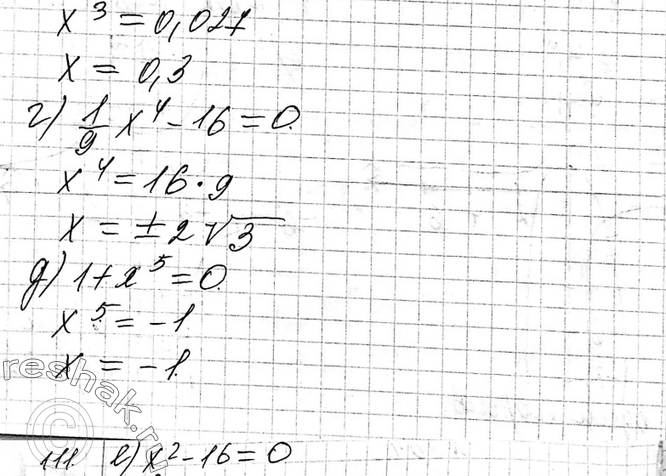 x³ = 0,027
x = 0,3
г) 1/9 x⁴ - 16 = 0.
x⁴ = 16 · 9
x = ± 2√3
д) 1 + x⁵ = 0.
x⁵ = -1
x = -1.
reshak.ru
111 е) x² - 16 = 0